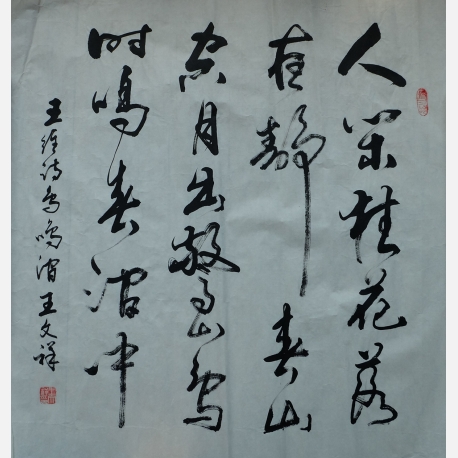 人闲桂花落
夜静春山
空月出驚山鸟
时鸣春涧中
王维诗鸟鸣涧王文祥